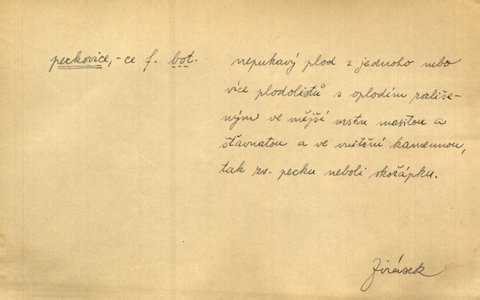 peckovice, -ce f. bot. nepukavý plod z jednoho nebo
více plodolistů s oplodím rozliše-
ným ve vnější vrstvu masitou a
šťavnatou a ve vnitřní kamennou,
tak zv. pecku neboli skořápku.
Jirásek